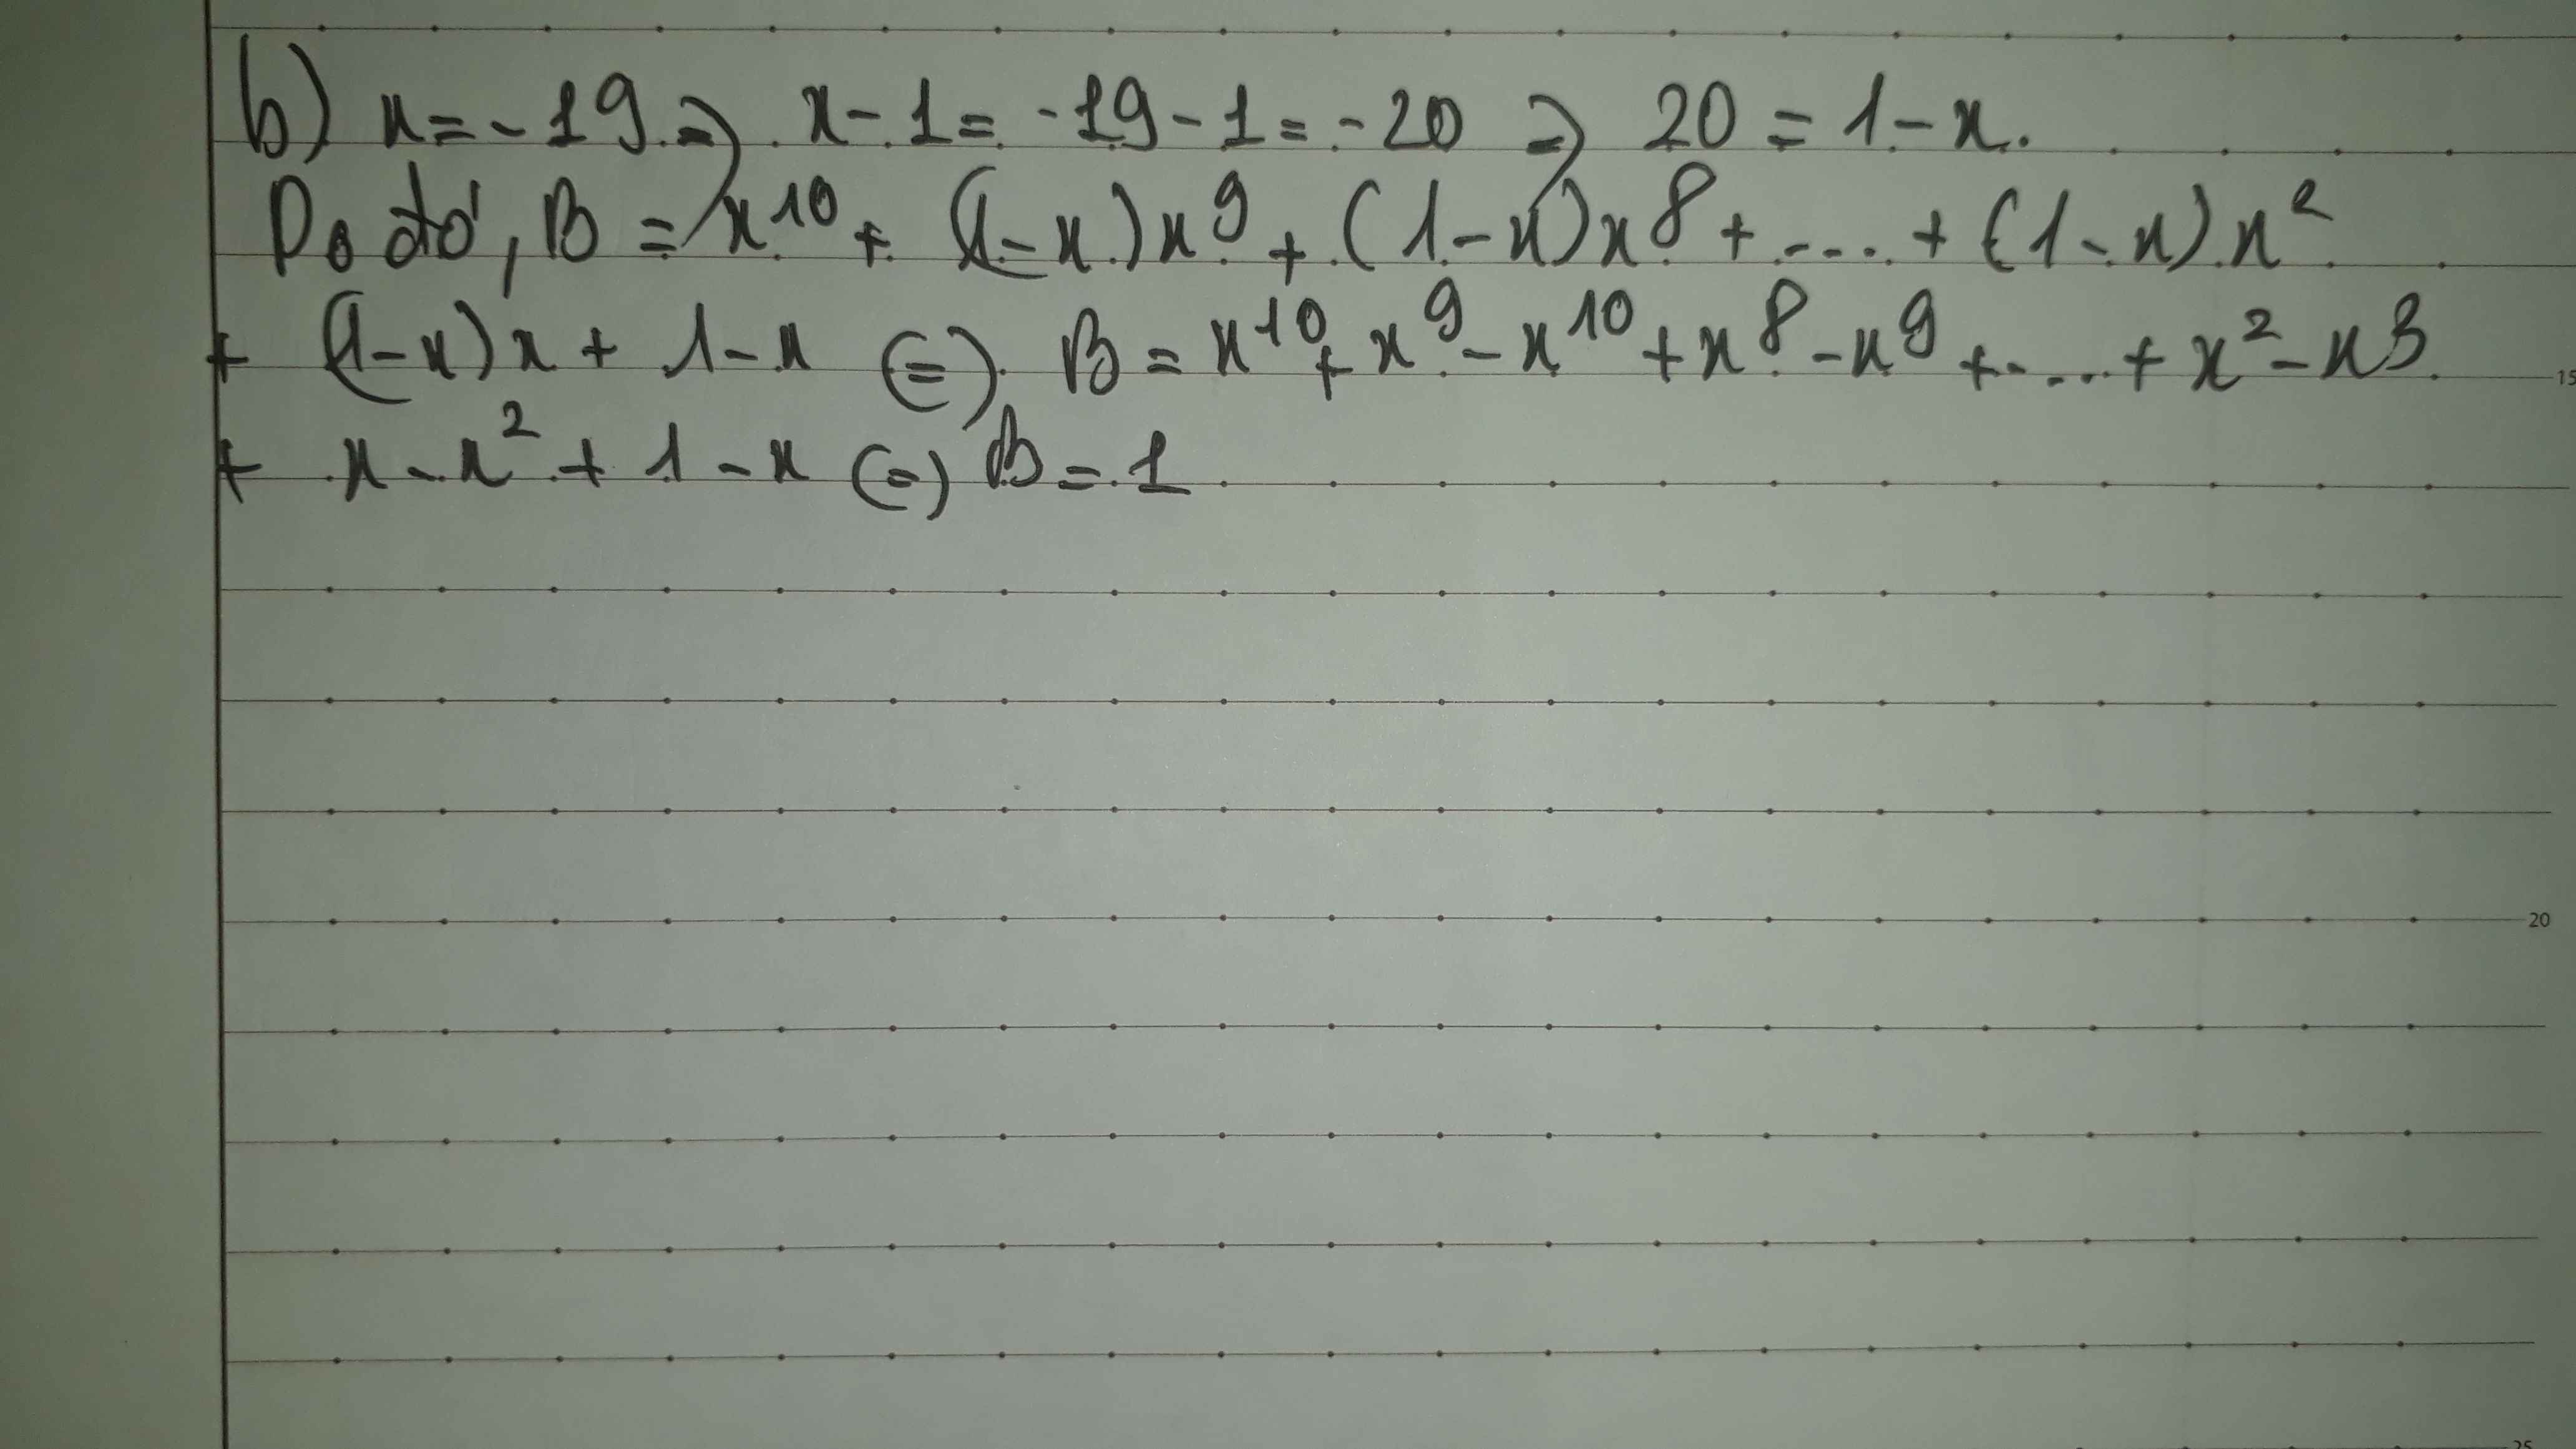 b) x = - 19 => x - 1 = - 19 - 1 = - 20 => 20 = 1 - x.
Do đó, B = x¹⁰ + (1 - x)x⁹ + (1 - x)x⁸ + .... + (1 - x)x²
+ (1 - x)x + 1 - x (=) B = x¹⁰ + x⁹ - x¹⁰ + x⁸ - x⁹ + .... + x² - x³
15
+ x - x² + 1 - x (=) B = 1
20
25